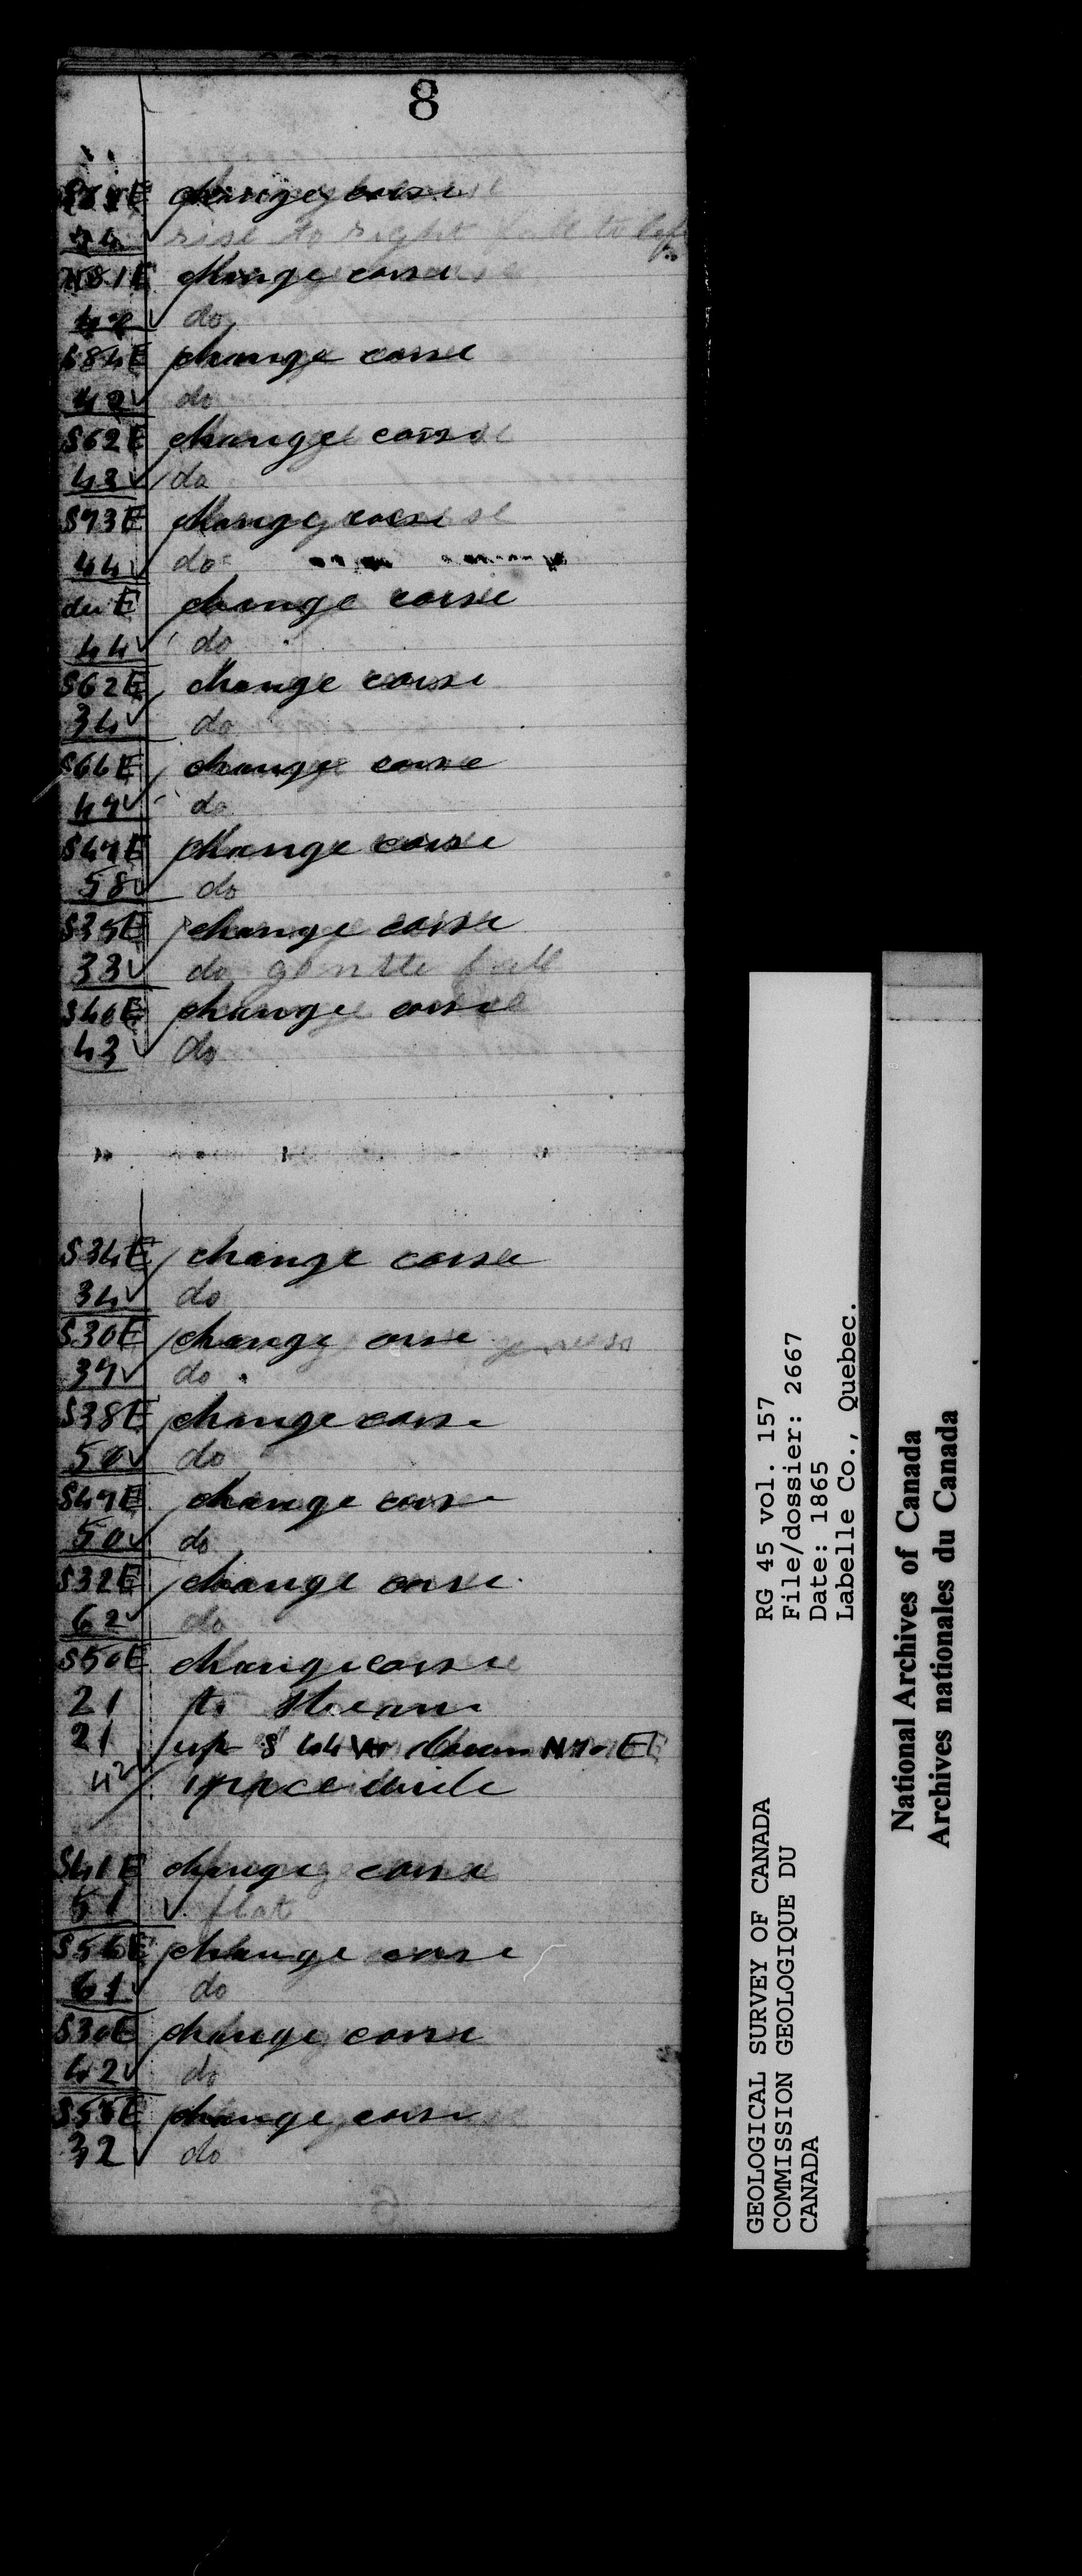 8
change corse
rise to right fall to left
N81E change corse
47 do
S84E change corse
42 do
S62E change corse
43 do
S73E change corse
44 do
du E change corse
44 do
S62E change corse
34 do
S66E change corse
47 do
S47E change corse
58 do
S35E change corse
33 do gentle fall
S40E change corse
43 do
S34E change corse
34 do
S30E change corse
37 do
S38E change corse
50 do
S47E change corse
50 do
S32E change corse
62 do
S50E change corse
21 to stream
21 up S 44 W down N70E
42 1 pace wide
S41E change corse
51 flat
S56E change corse
61 do
S30E change corse
42 do
S55E change corse
32 do
GEOLOGICAL SURVEY OF CANADA RG 45 vol. 157
COMMISSION GEOLOGIQUE DU File/dossier: 2667
CANADA Date: 1865
Labelle Co., Quebec.
National Archives of Canada
Archives nationales du Canada